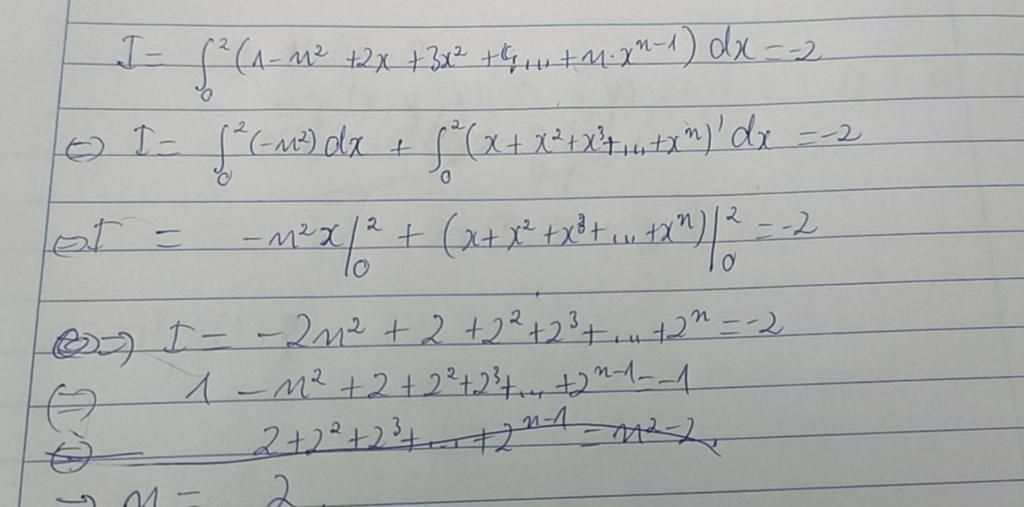 I = ∫₀² (1 - n² + 2x + 3x² + 4... + n·xⁿ⁻¹) dx = -2
⇔ I = ∫₀² (-n²) dx + ∫₀² (x + x² + x³ + ... + xⁿ)' dx = -2
⇔ I = -n²x |₀² + (x + x² + x³ + ... + xⁿ) |₀² = -2
⇔ I = -2n² + 2 + 2² + 2³ + ... + 2ⁿ = -2
⇔ 1 - n² + 2 + 2² + 2³ + ... + 2ⁿ⁻¹ = -1
⇔ 2 + 2² + 2³ + ... + 2ⁿ⁻¹ = n² - 2
→ n = 2